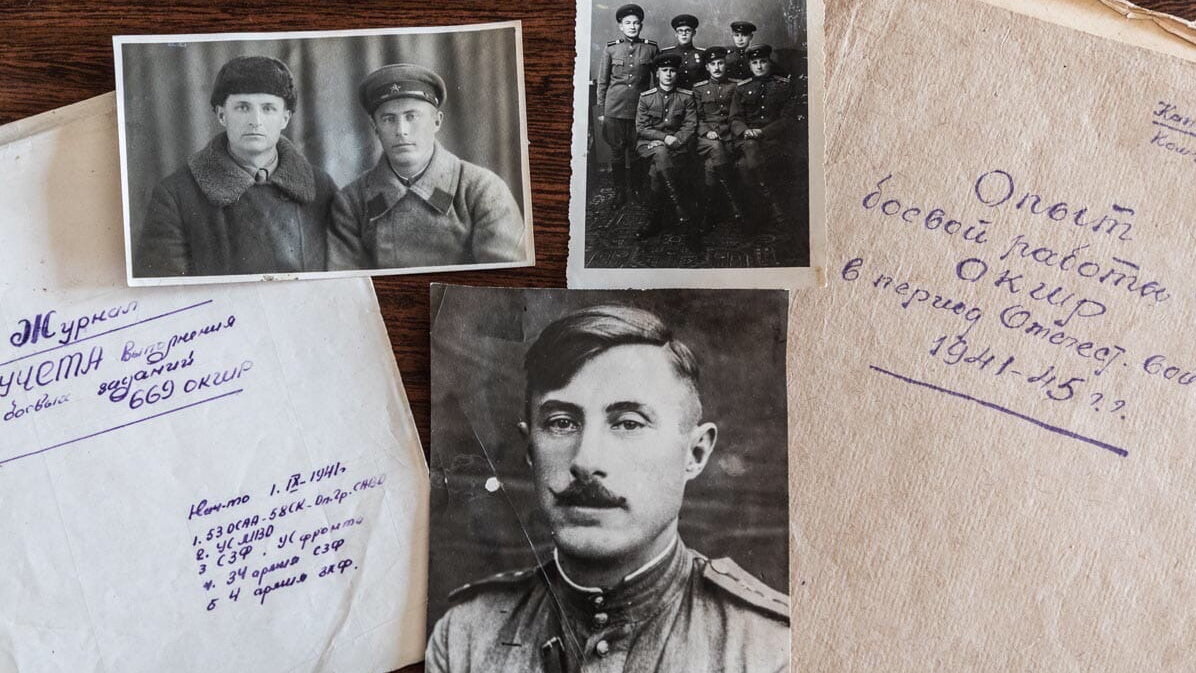 Журнал
учета выполнения
боевых заданий
669 ОКШР
Нач-то 1.IX-1941г
1. 53 ОСАА-58СК-Оп.Гр.САВО
2. УС МВО
3 СЗФ. УС фронта
4. 34 армия СЗФ
5 4 армия ЗКФ.
Опыт
боевой работы
ОКШР
в период Отечест. вой
1941-45 г.г.